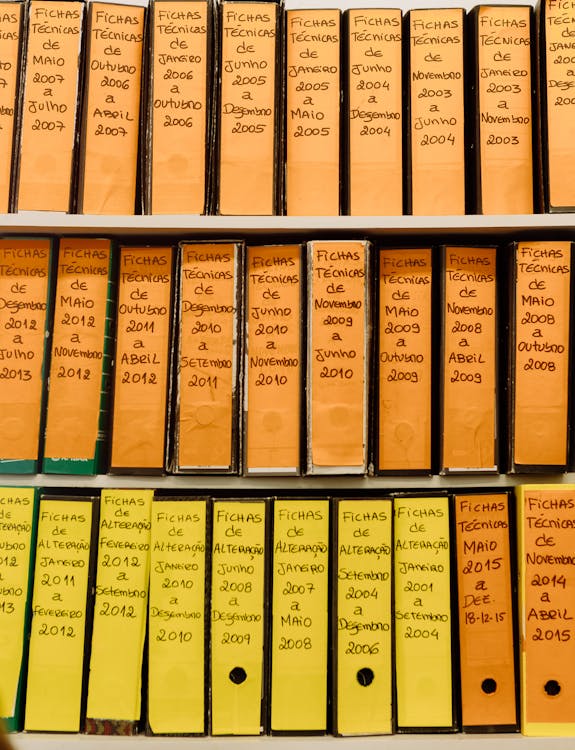 FICHAS
TÉCNICAS
de
MAIO
2007
a
Julho
2007
FICHAS
TÉCNICAS
de
Outubro
2006
a
ABRIL
2007
FICHAS
TÉCNICAS
de
JANEIRO
2006
a
Outubro
2006
FICHAS
TÉCNICAS
de
Junho
2005
a
Dezembro
2005
FICHAS
TÉCNICAS
de
JANEIRO
2005
a
MAIO
2005
FICHAS
TÉCNICAS
de
Junho
2004
a
Dezembro
2004
FICHAS
TÉCNICAS
de
Novembro
2003
a
Junho
2004
FICHAS
TÉCNICAS
de
JANEIRO
2003
a
Novembro
2003
FICHAS
TÉCNICAS
de
Dezembro
2012
a
Julho
2013
FICHAS
TÉCNICAS
de
MAIO
2012
a
Novembro
2012
FICHAS
TÉCNICAS
de
Outubro
2011
a
ABRIL
2012
FICHAS
TÉCNICAS
de
Dezembro
2010
a
SETEMBRO
2011
FICHAS
TÉCNICAS
de
Junho
2010
a
Novembro
2010
FICHAS
TÉCNICAS
de
Novembro
2009
a
Junho
2010
FICHAS
TÉCNICAS
de
MAIO
2009
a
Outubro
2009
FICHAS
TÉCNICAS
de
Novembro
2008
a
ABRIL
2009
FICHAS
TÉCNICAS
de
MAIO
2008
a
Outubro
2008
FICHAS
de
ALTERAÇÃO
JANEIRO
2011
a
Fevereiro
2012
FICHAS
de
ALTERAÇÃO
FEVEREIRO
2012
a
Setembro
2012
FICHAS
de
ALTERAÇÃO
JANEIRO
2010
a
Dezembro
2010
FICHAS
de
ALTERAÇÃO
Junho
2008
a
Dezembro
2009
FICHAS
de
ALTERAÇÃO
JANEIRO
2007
a
MAIO
2008
FICHAS
de
ALTERAÇÃO
Setembro
2004
a
Dezembro
2006
FICHAS
de
ALTERAÇÃO
JANEIRO
2001
a
Setembro
2004
FICHAS
TÉCNICAS
MAIO
2015
a
DEZ.
18-12-15
FICHAS
TÉCNICAS
de
Novembro
2014
a
ABRIL
2015